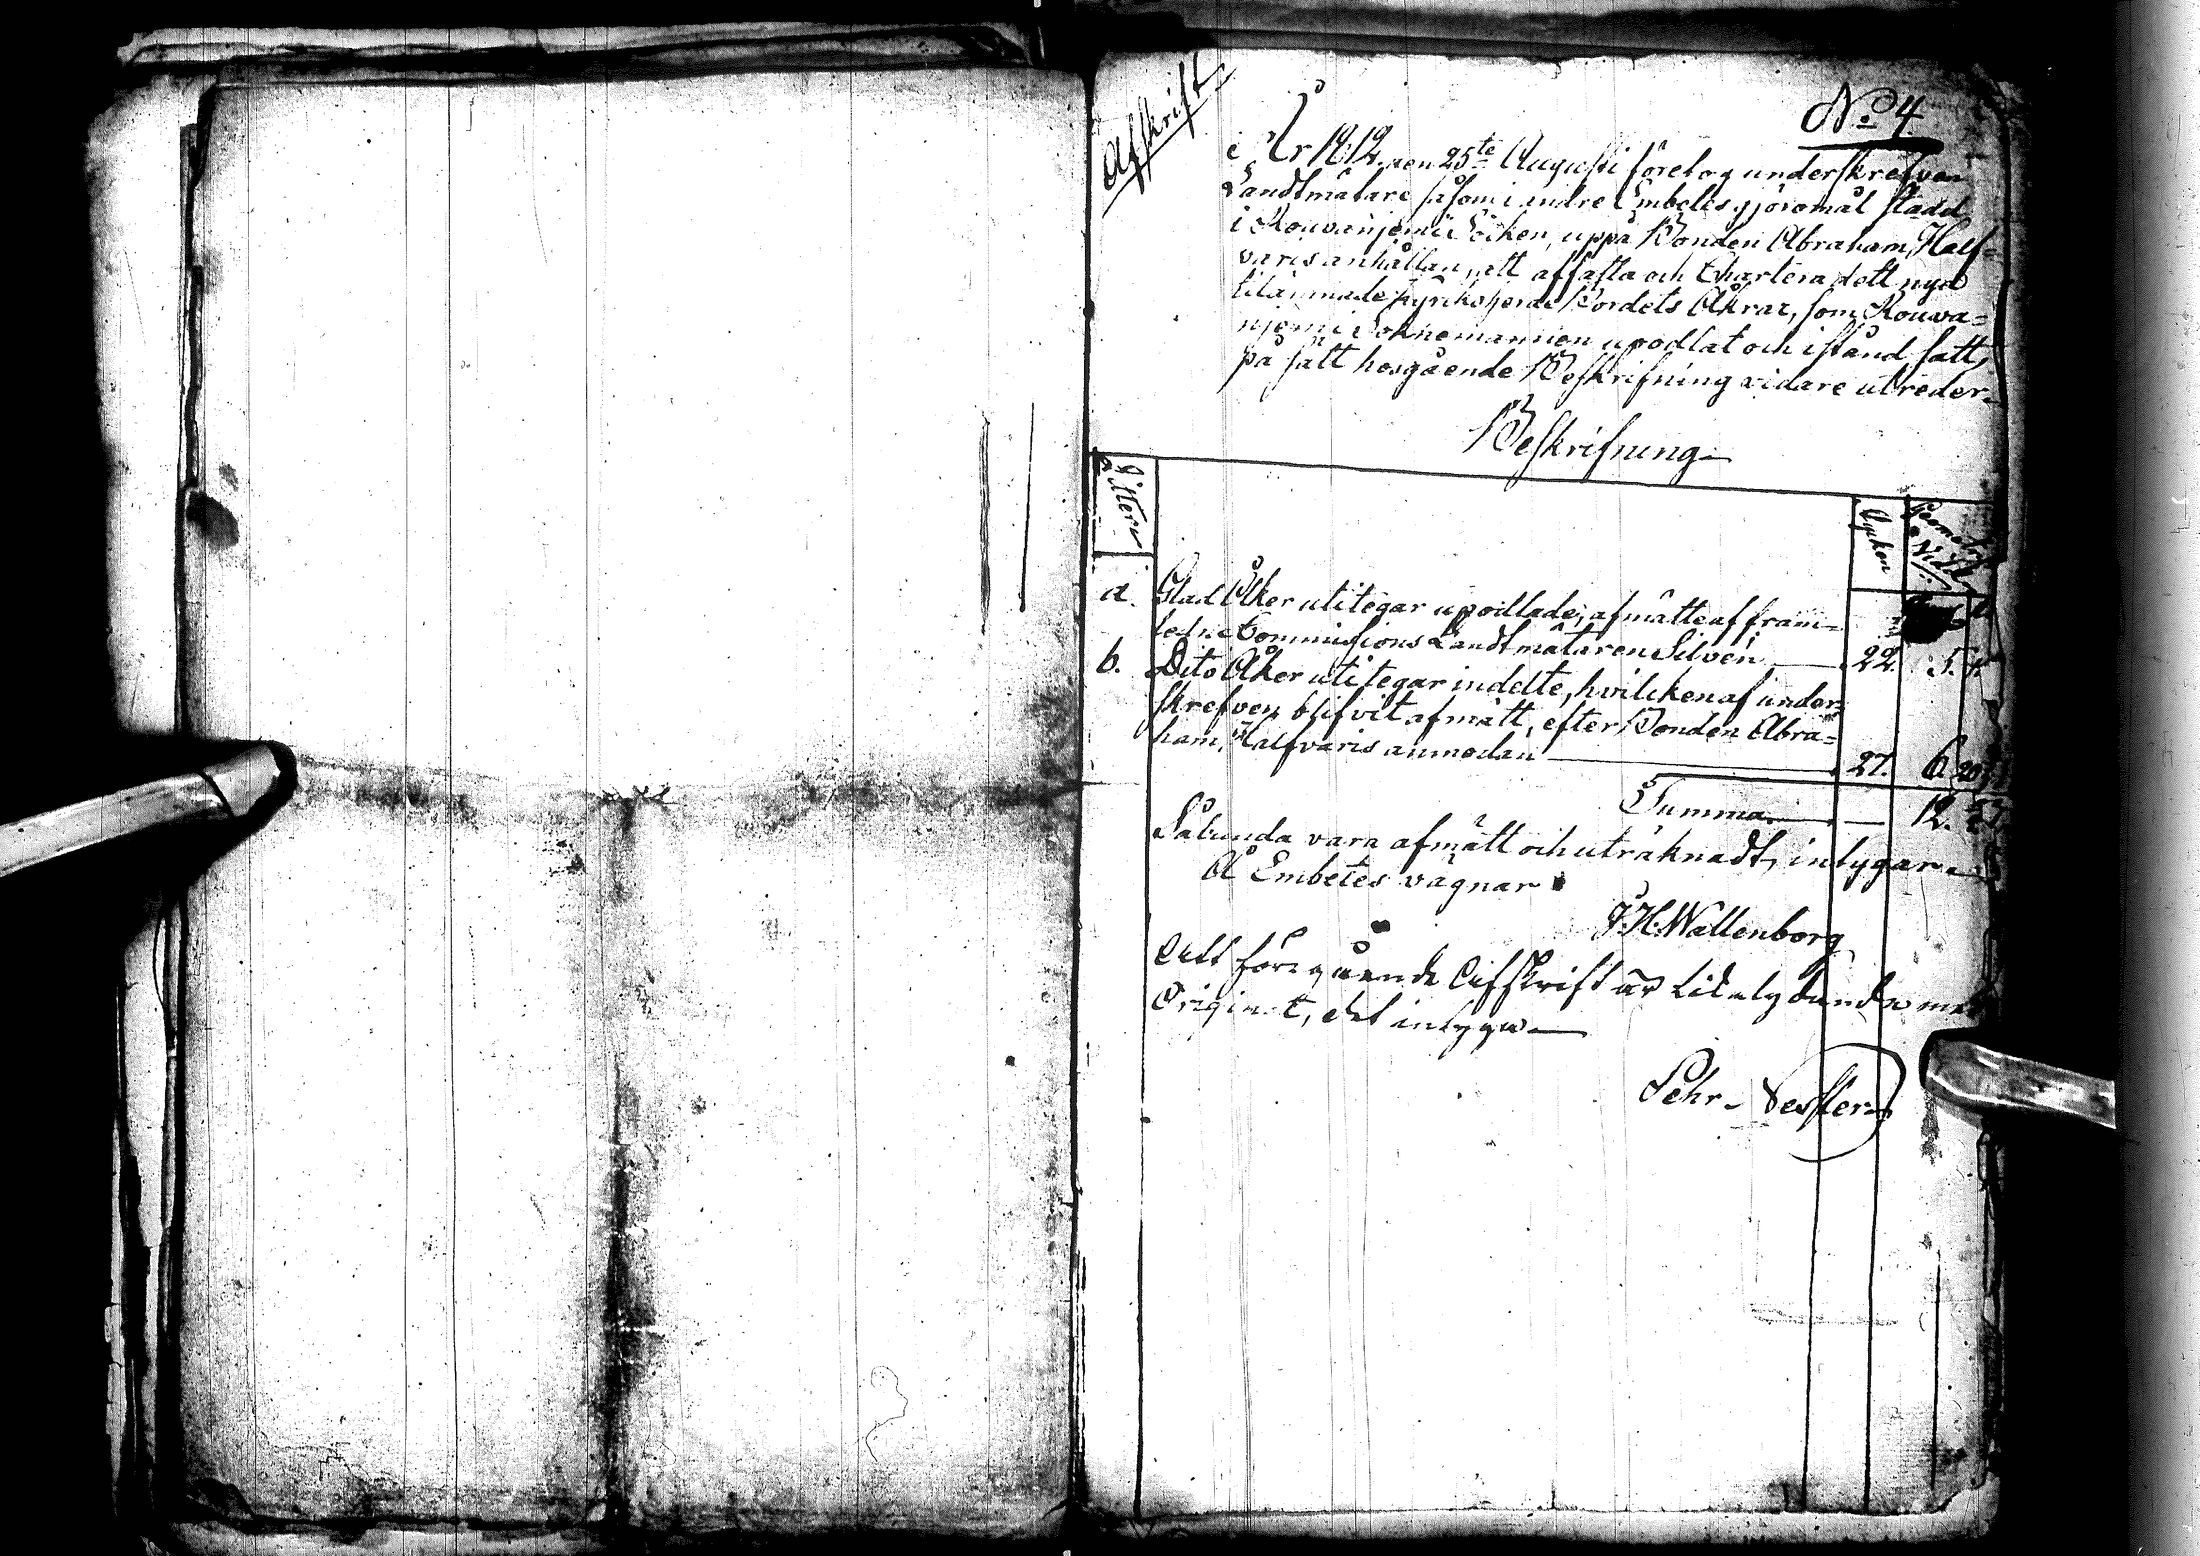 Afskrift
No 4
År 1812. den 25te Augusti företog underskrefven
Landtmätare såsom i andre Embetes gjöromål stadd
i Rouvanjemi Socken, uppå Bonden Abraham Half-
varis anhållan, att affatta och Chartera dett nyd
Kyrkoherde Bordets Åkrar, som Rouva-
njemi Soknemännen upodlat och i stånd satt,
på sätt hosgående Beskrifning vidare utreder.
Beskrifning
Littera
a. Glad Åker uti tegar upodlade, afmätte af fram-
ledne Commissions Landtmätaren Silvén 22. 5.
b. Dito Åker uti tegar indelte, hvilcken af under-
skrefven blifvit afmätt, efter Bonden Abra-
ham, Halfvaris anmodan 27. 6.
Summa 12.
Sålunda vara afmätt och uträknadt, intygar
Å Embetes vägnar
J.H. Wallenborg
Att föregående Afskrift är likalydande med
Originalet, det intygar
Pehr